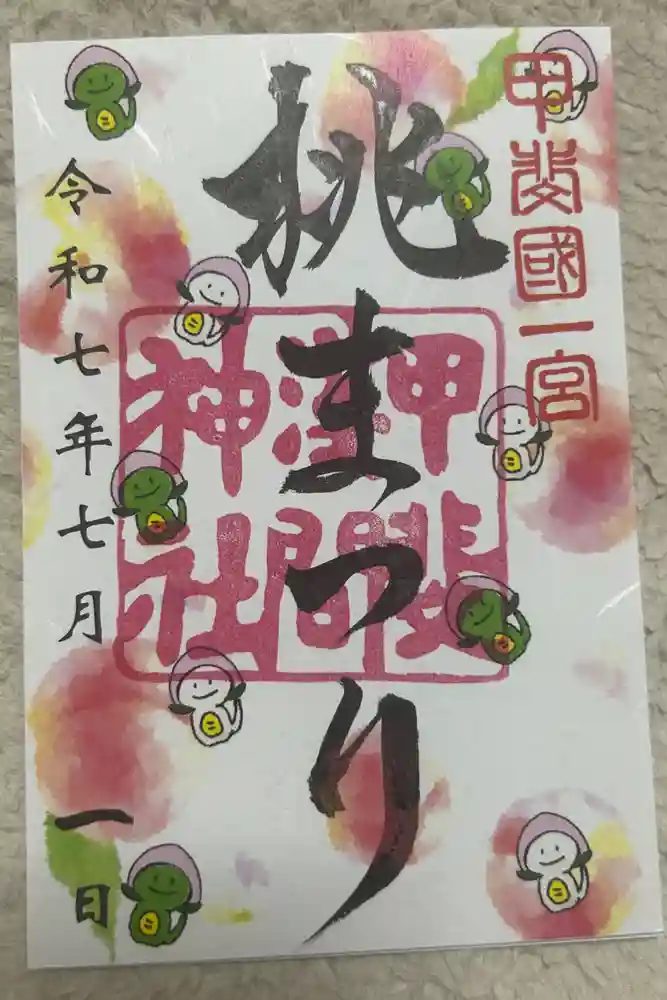 甲斐國一宮
桃まつり
甲斐
浅間
神社
令和七年七月一日